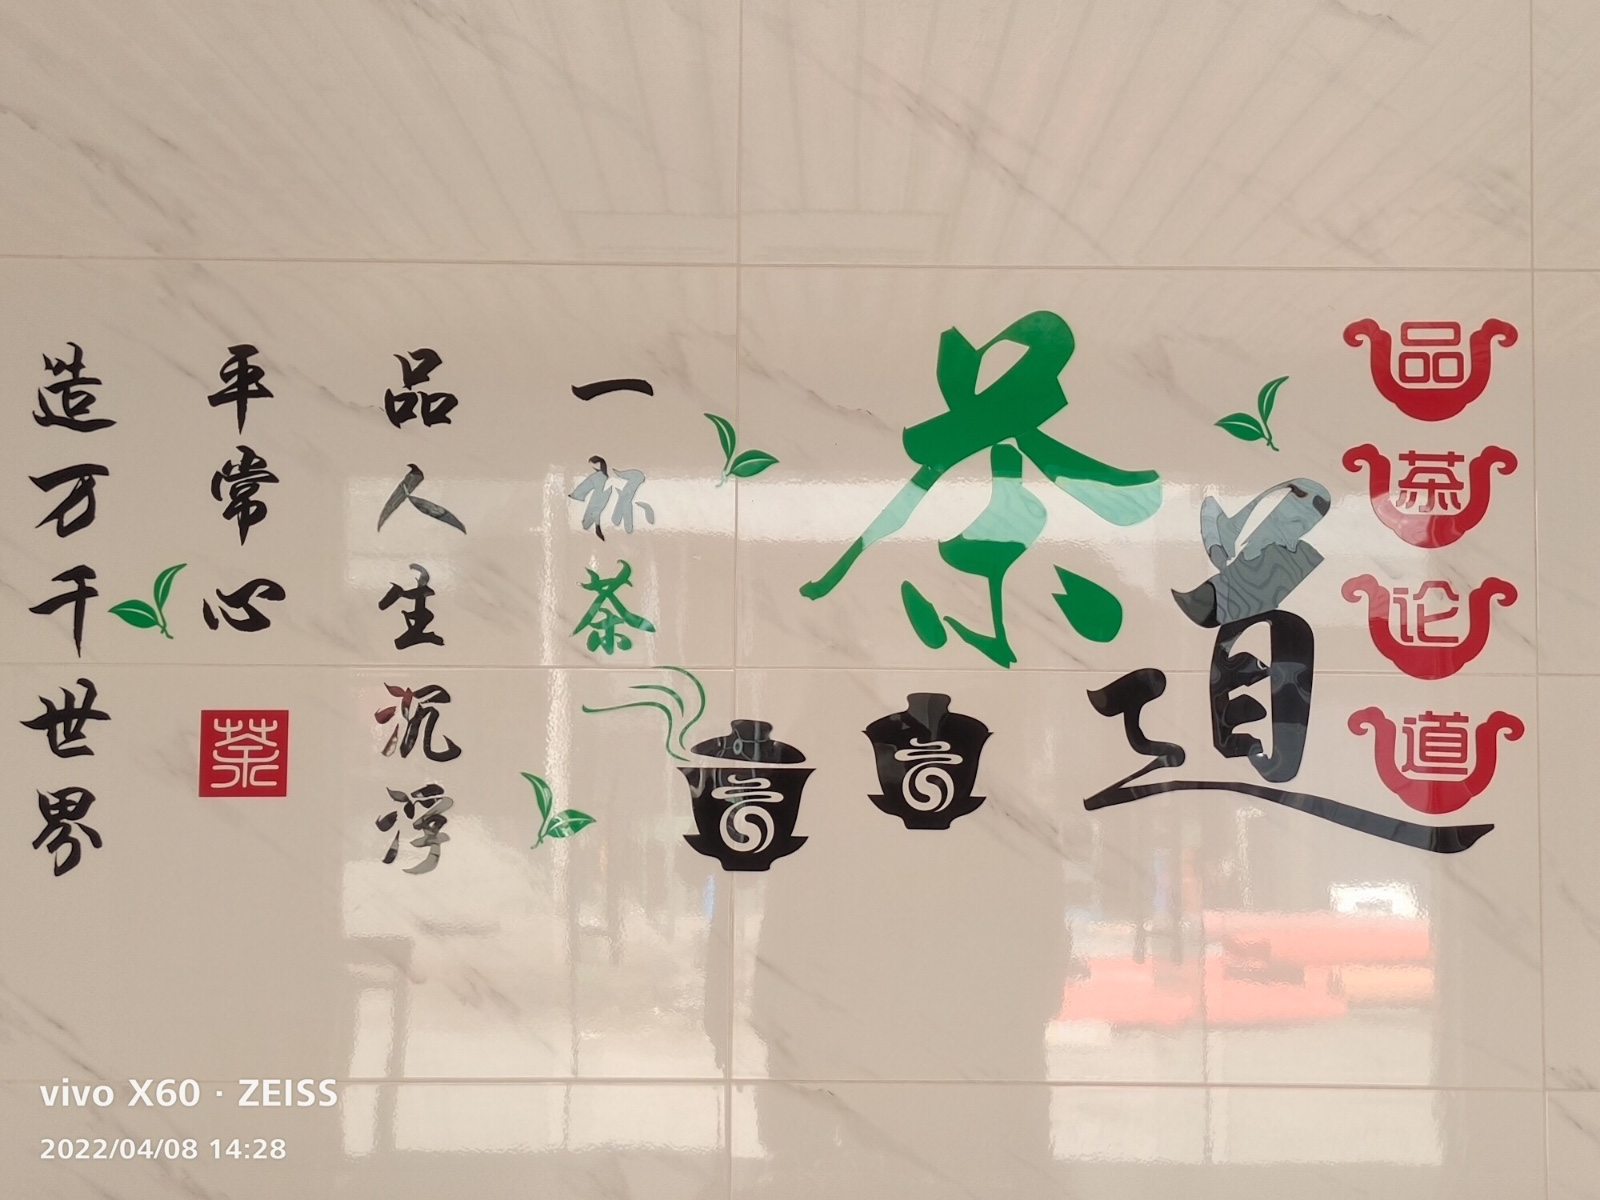 品茶论道
茶道
一杯茶
品人生沉浮
平常心
茶
造万千世界
vivo X60 · ZEISS
2022/04/08 14:28